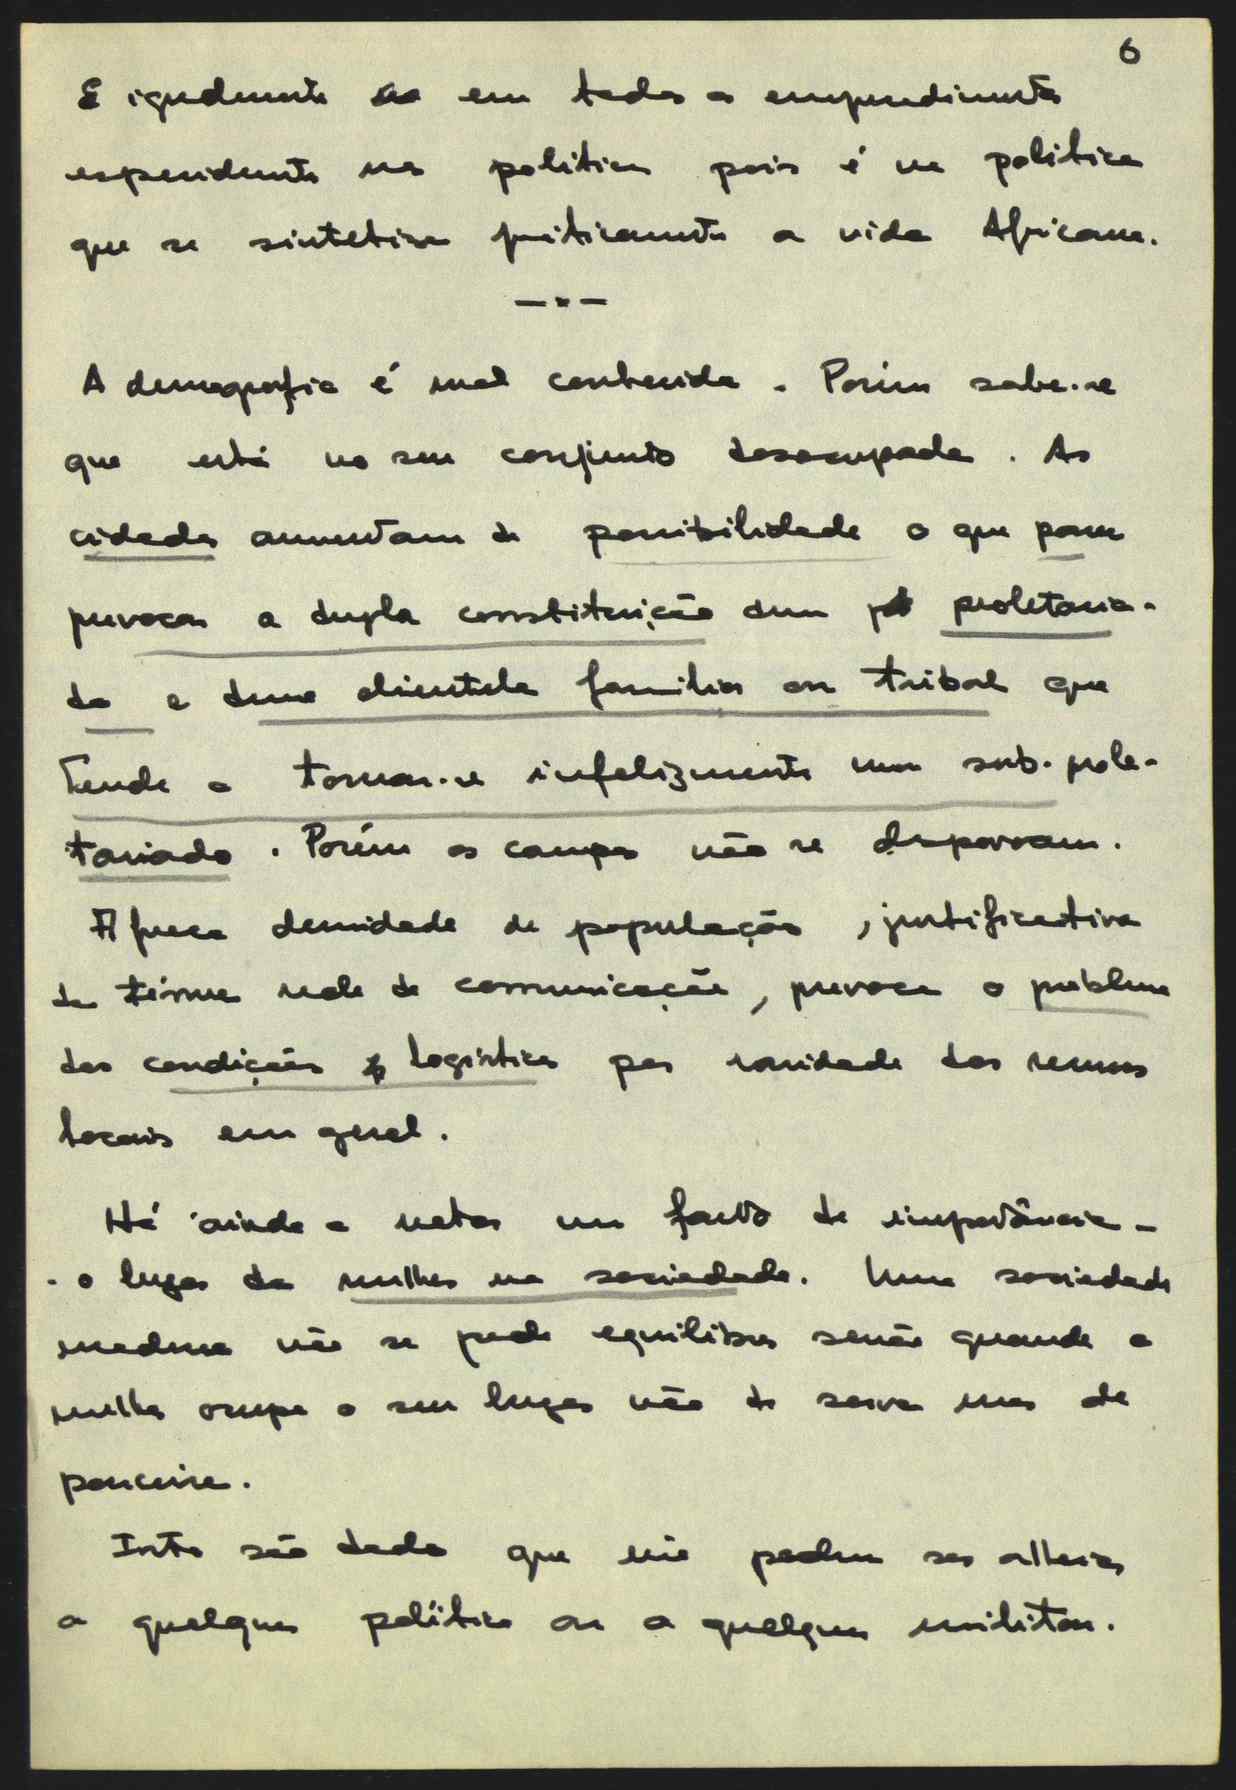 6
E igualmente em todos os empreendimentos
na politica pois é na politica
que se sintetisa praticamente a vida Africana.
—·—
A demografia é mal conhecida. Porém sabe-se
que está no seu conjunto desocupada. As
cidades aumentam de possibilidade o que parece
provocar a dupla constituição dum proletaria-
do e duma clientela familiar ou tribal que
tende a tornar-se infelizmente num sub-prole-
tariado. Porém os campos não se despovoam.
A fraca densidade de população, justificativa
da ténue rede de comunicação, provoca o problema
das condições logisticas por raridade dos recursos
locais em geral.
Há ainda a notar um facto de importância -
- o lugar da mulher na sociedade. Uma sociedade
moderna não se pode equilibrar senão quando a
mulher ocupa o seu lugar não de serva mas de
parceira.
Isto são dados que não podem ser alheios
a qualquer politico ou a qualquer militar.